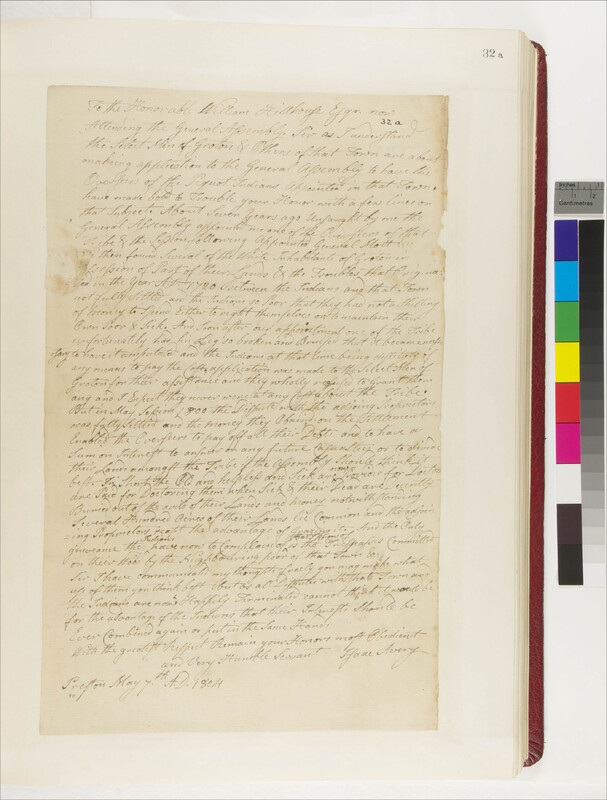 32 a
To the Honorable William Hillhouse Esqr. now
32 a
Attending the General Assembly Sir as I understand
the Select Men of Groton & Others of that Town are about
making application to the General Assembly to have the
Overseers of the Pequot Indians Appointed in that Town I
have made bold to Trouble your Honor with a few lines on
that Subject. About Seven Years ago unsought by me the
General Assembly appointed me one of the Overseers of that
Tribe & the Session following Appointed General Mott
then found Several of the White Inhabitants of Groton in
Possession of Part of their Lands & the Troubles that Origina
ted in the Year AD 1780 between the Indians and that Town
not fully Settled and the Indians so Poor that they has not a Shilling
of Money to Spend Either to right themselves or to maintain their
Own Poor & Sick. And Soon after our appointment one of the Tribe
unfortunately has his Leg so broken and Bruised that it became neces
sary to have it amputated and the Indians at that time being destitute of
any means to pay the Costs application was made to the Select Men of
Groton for their assistance and they wholly refused to Grant them
any and I Expect they never were at any Cost about the Tribe.
But in May Session 1800 the Dispute with the adjoining Proprietors
was fully Settled and the money they Obtained on the Settlement
Enabled the Overseers to pay off all their Debts and to have a
Sum on Interest to answer on any future Capacities or to divide
their Loans amongst the Tribe if the Assembly Should think
best. In Short the Old and helpless and Sick are now
are for Doctoring them when Sick & their Dead are Decently
Buried out of the avails of their Lands and Money notwithstanding
Several Hundred Acres of their Lands lie Common and the adjoin
ing Proprietors reap the advantage of Grazing it. And the Only
grievance the Indians have now to Complain of is the Trespasses Committed
on their Wood by the Neighbouring poor of that Town &c
Sir I have communicated my thoughts freely you may make what
use of them you think best but as all Disputes with that Town and
the Indians are now Happily Terminated I cannot think it would be
for the advantage of the Indians that their Interests Should be
Ever Combined again or put in the Same Hands
With the greatest Respect Remain your Honors most Obedient
and Very Humble Servant Isaac Avery
Preston May 7th A.D. 1804
Centimetres